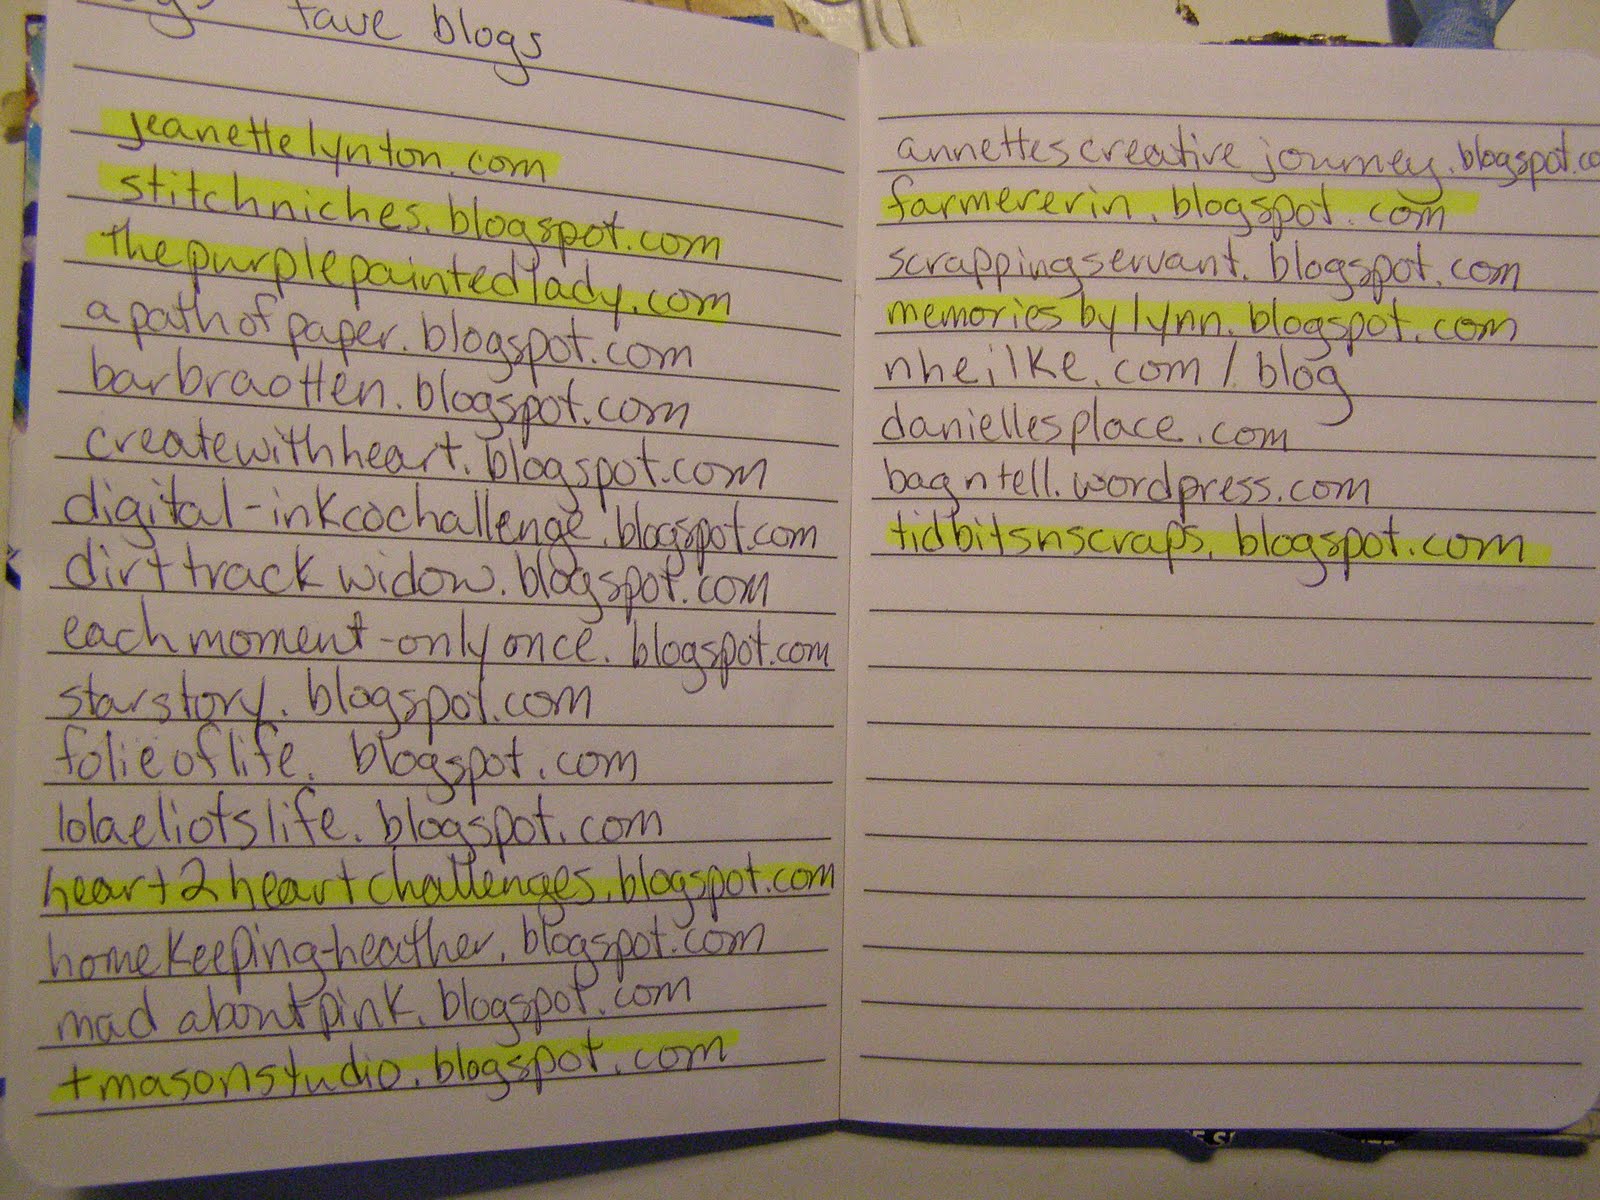 fave blogs
jeanettelynton.com
stitchniches.blogspot.com
thepurplepaintedlady.com
apathofpaper.blogspot.com
barbraotten.blogspot.com
createwithheart.blogspot.com
digital-inkcochallenge.blogspot.com
dirttrackwidow.blogspot.com
eachmoment-onlyonce.blogspot.com
starstory.blogspot.com
folieoflife.blogspot.com
lolaeliotslife.blogspot.com
heart2heartchallenges.blogspot.com
homekeeping-heather.blogspot.com
madaboutpink.blogspot.com
tmasonstudio.blogspot.com
annettescreativejourney.blogspot.co
farmererin.blogspot.com
scrappingservant.blogspot.com
memoriesbylynn.blogspot.com
nheilke.com/blog
daniellesplace.com
bagntell.wordpress.com
tidbitsnscraps.blogspot.com